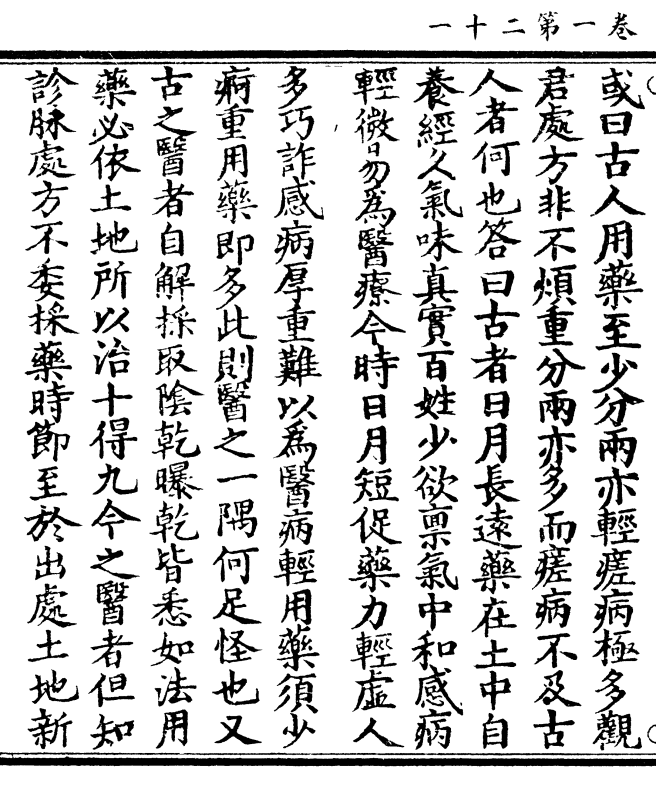 卷一第二十一
或曰古人用藥至少分兩亦輕瘥病極多觀
君處方非不煩重分兩亦多而瘥病不及古
人者何也答曰古者日月長遠藥在土中自
養經久氣味真實百姓少欲禀氣中和感病
輕微易為醫療今時日月短促藥力輕虛人
多巧詐感病厚重難以為醫病輕用藥須少
痾重用藥即多此則醫之一隅何足怪也又
古之醫者自解採取陰乾曝乾皆悉如法用
藥必依土地所以治十得九今之醫者但知
診脉處方不委採藥時節至於出處土地新